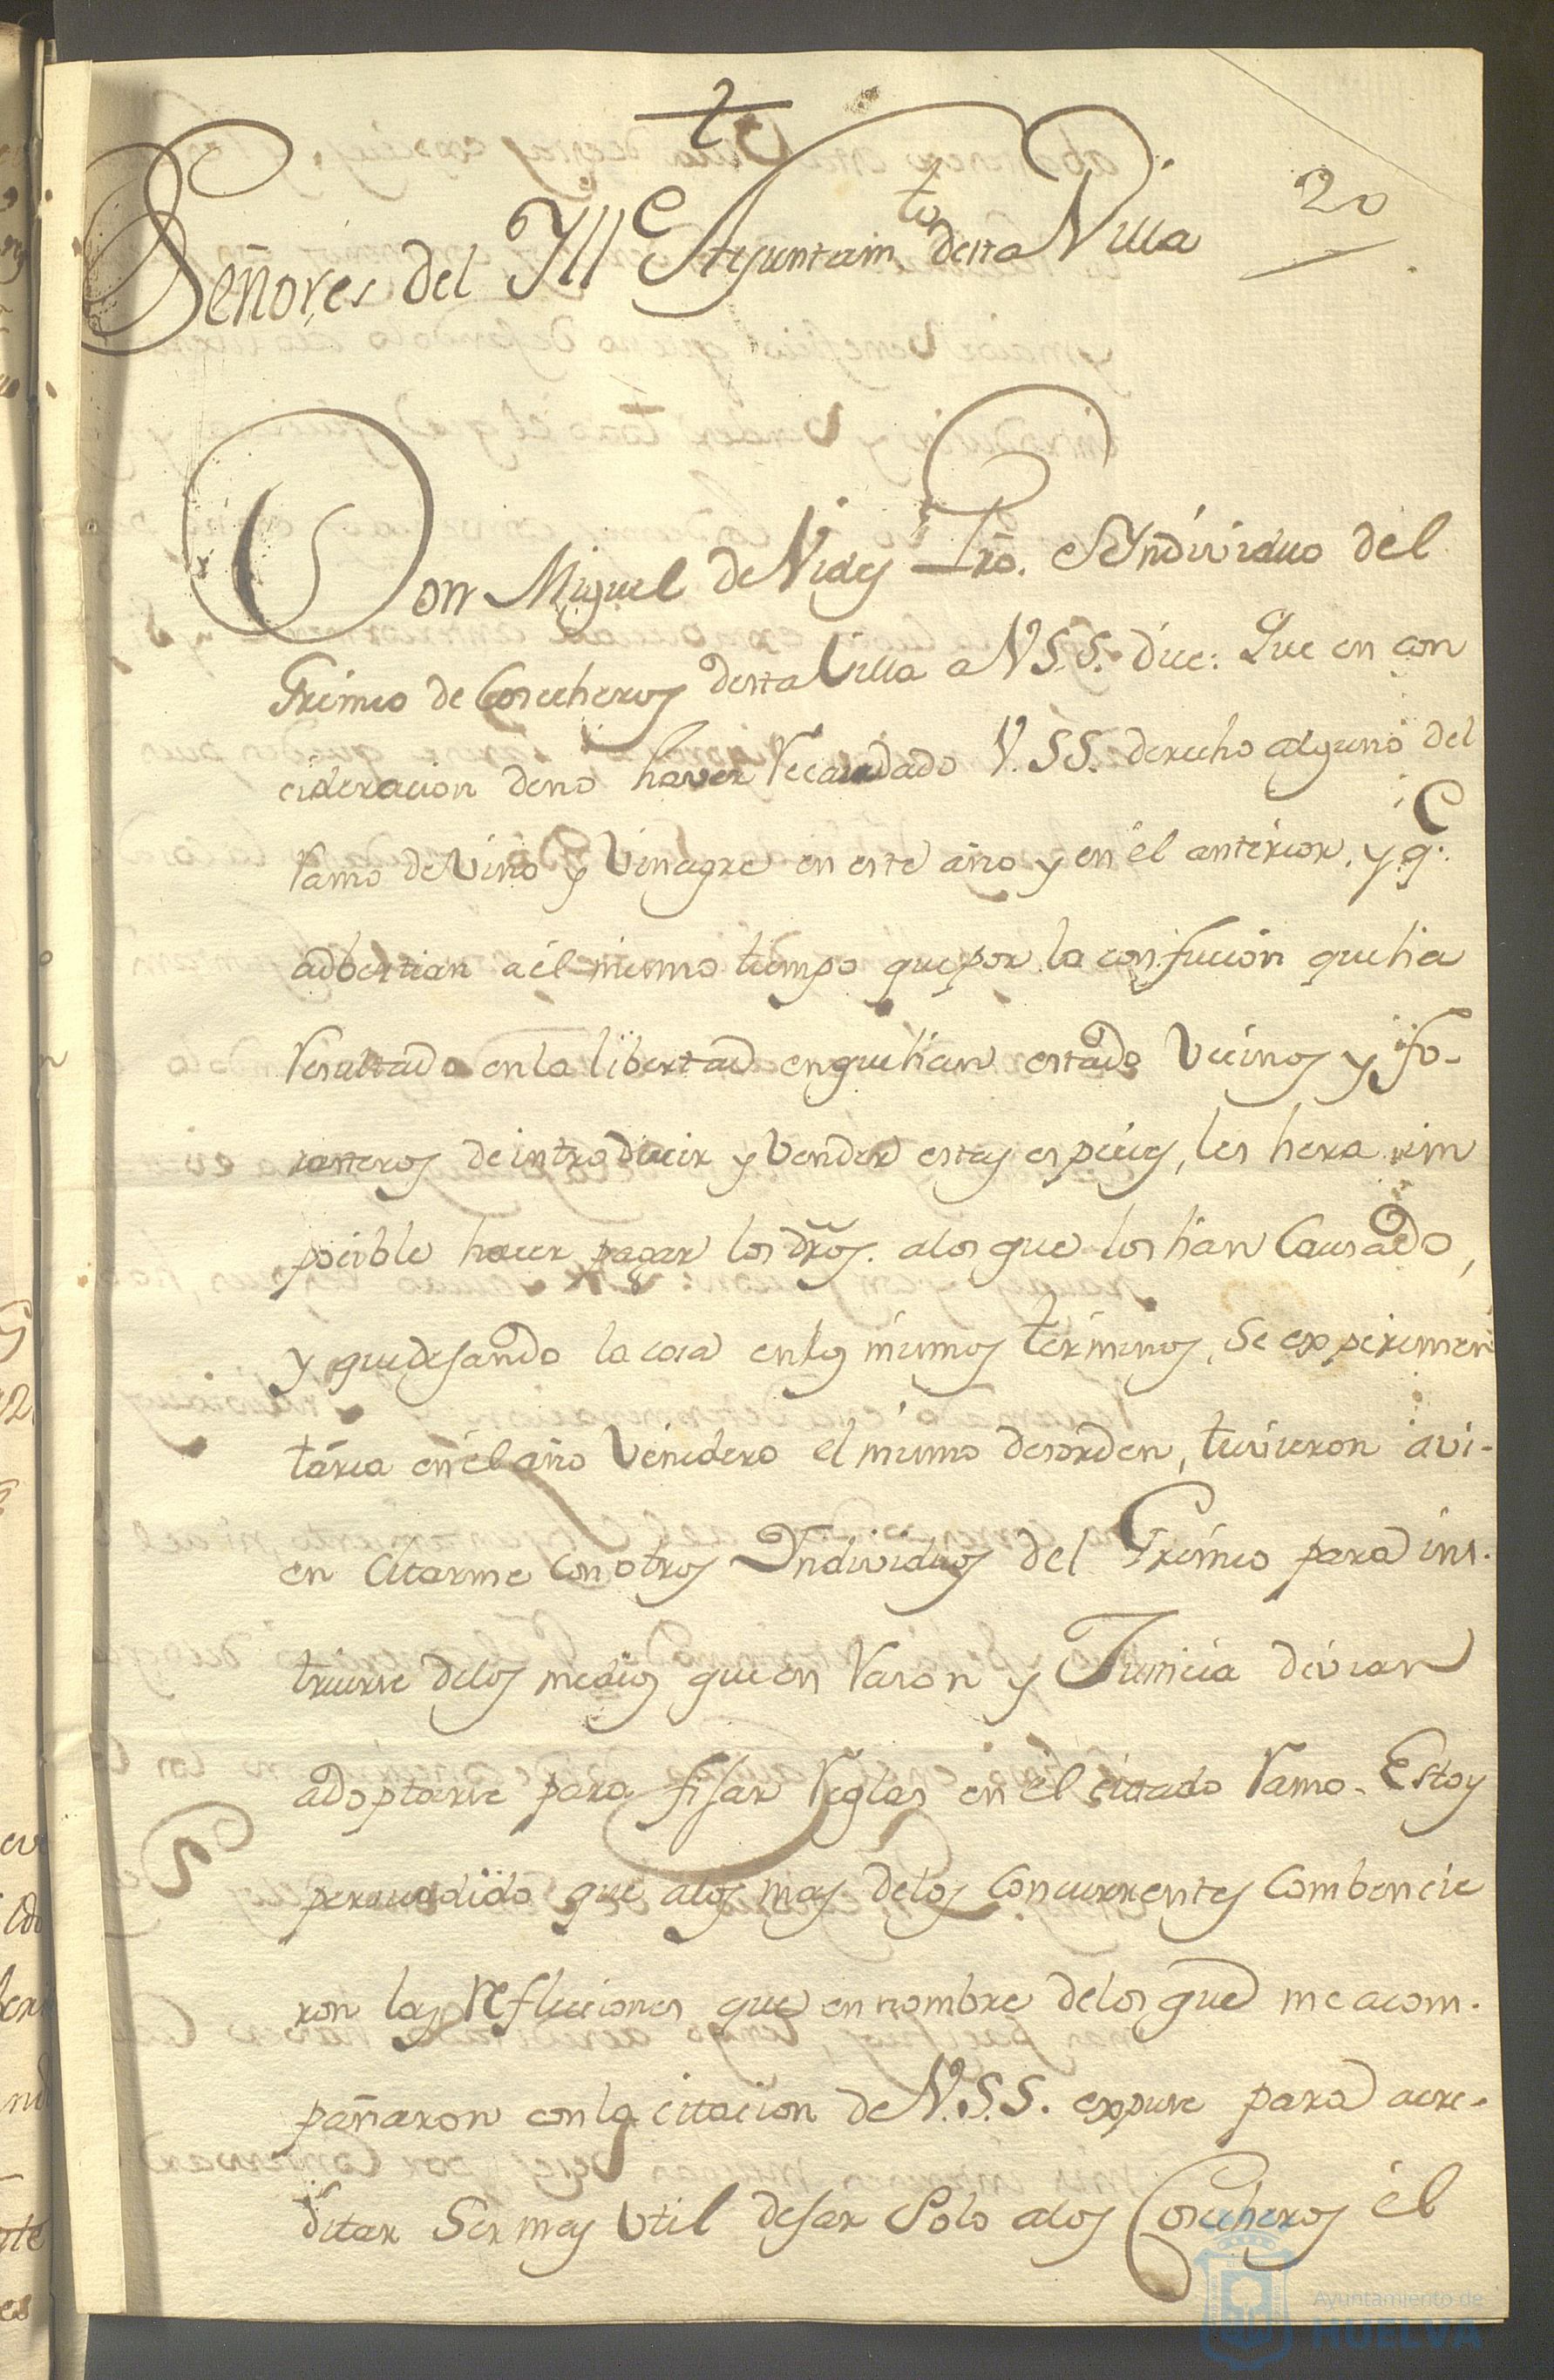 20
Señores del Yll.e Ayuntam.to desta Villa
Don Miguel de Vides Pro. è Yndividuo del
Gremio de Cosecheros desta Villa a V.S.S. dice: Que en con
cideracion deno haver Recaudado V.SS. derecho alguno del
Ramo de Vino y Vinagre en este año y en el anterior, y q.e
adbertian a el mismo tiempo que por la confucion que ha
Resultado en la libertad en que han estado Vecinos y fo-
rasteros de introducir y Vender estas especies, les hera im
pocible hacer pagar los dros. a los que los han Causado,
y que desando la cosa en los mismos terminos, Se experimen
taria en el año Venidero el mismo desorden, tuvieron a vi-
en Citarme con otros Yndividuos del Gremio para ins-
truirse delos medios que en Rason y Justicia devian
adoptarse para fisar Reglas en el citado Ramo. Estoy
persuadido que alos mas delos Concurrentes Combencie
ron las Reflecciones que en nombre delos que me acom-
pañaron con la citacion de V.S.S. expuse para acre-
ditar Ser mas Util desar Solo alos Cosecheros el
Ayuntamiento de
HUELVA